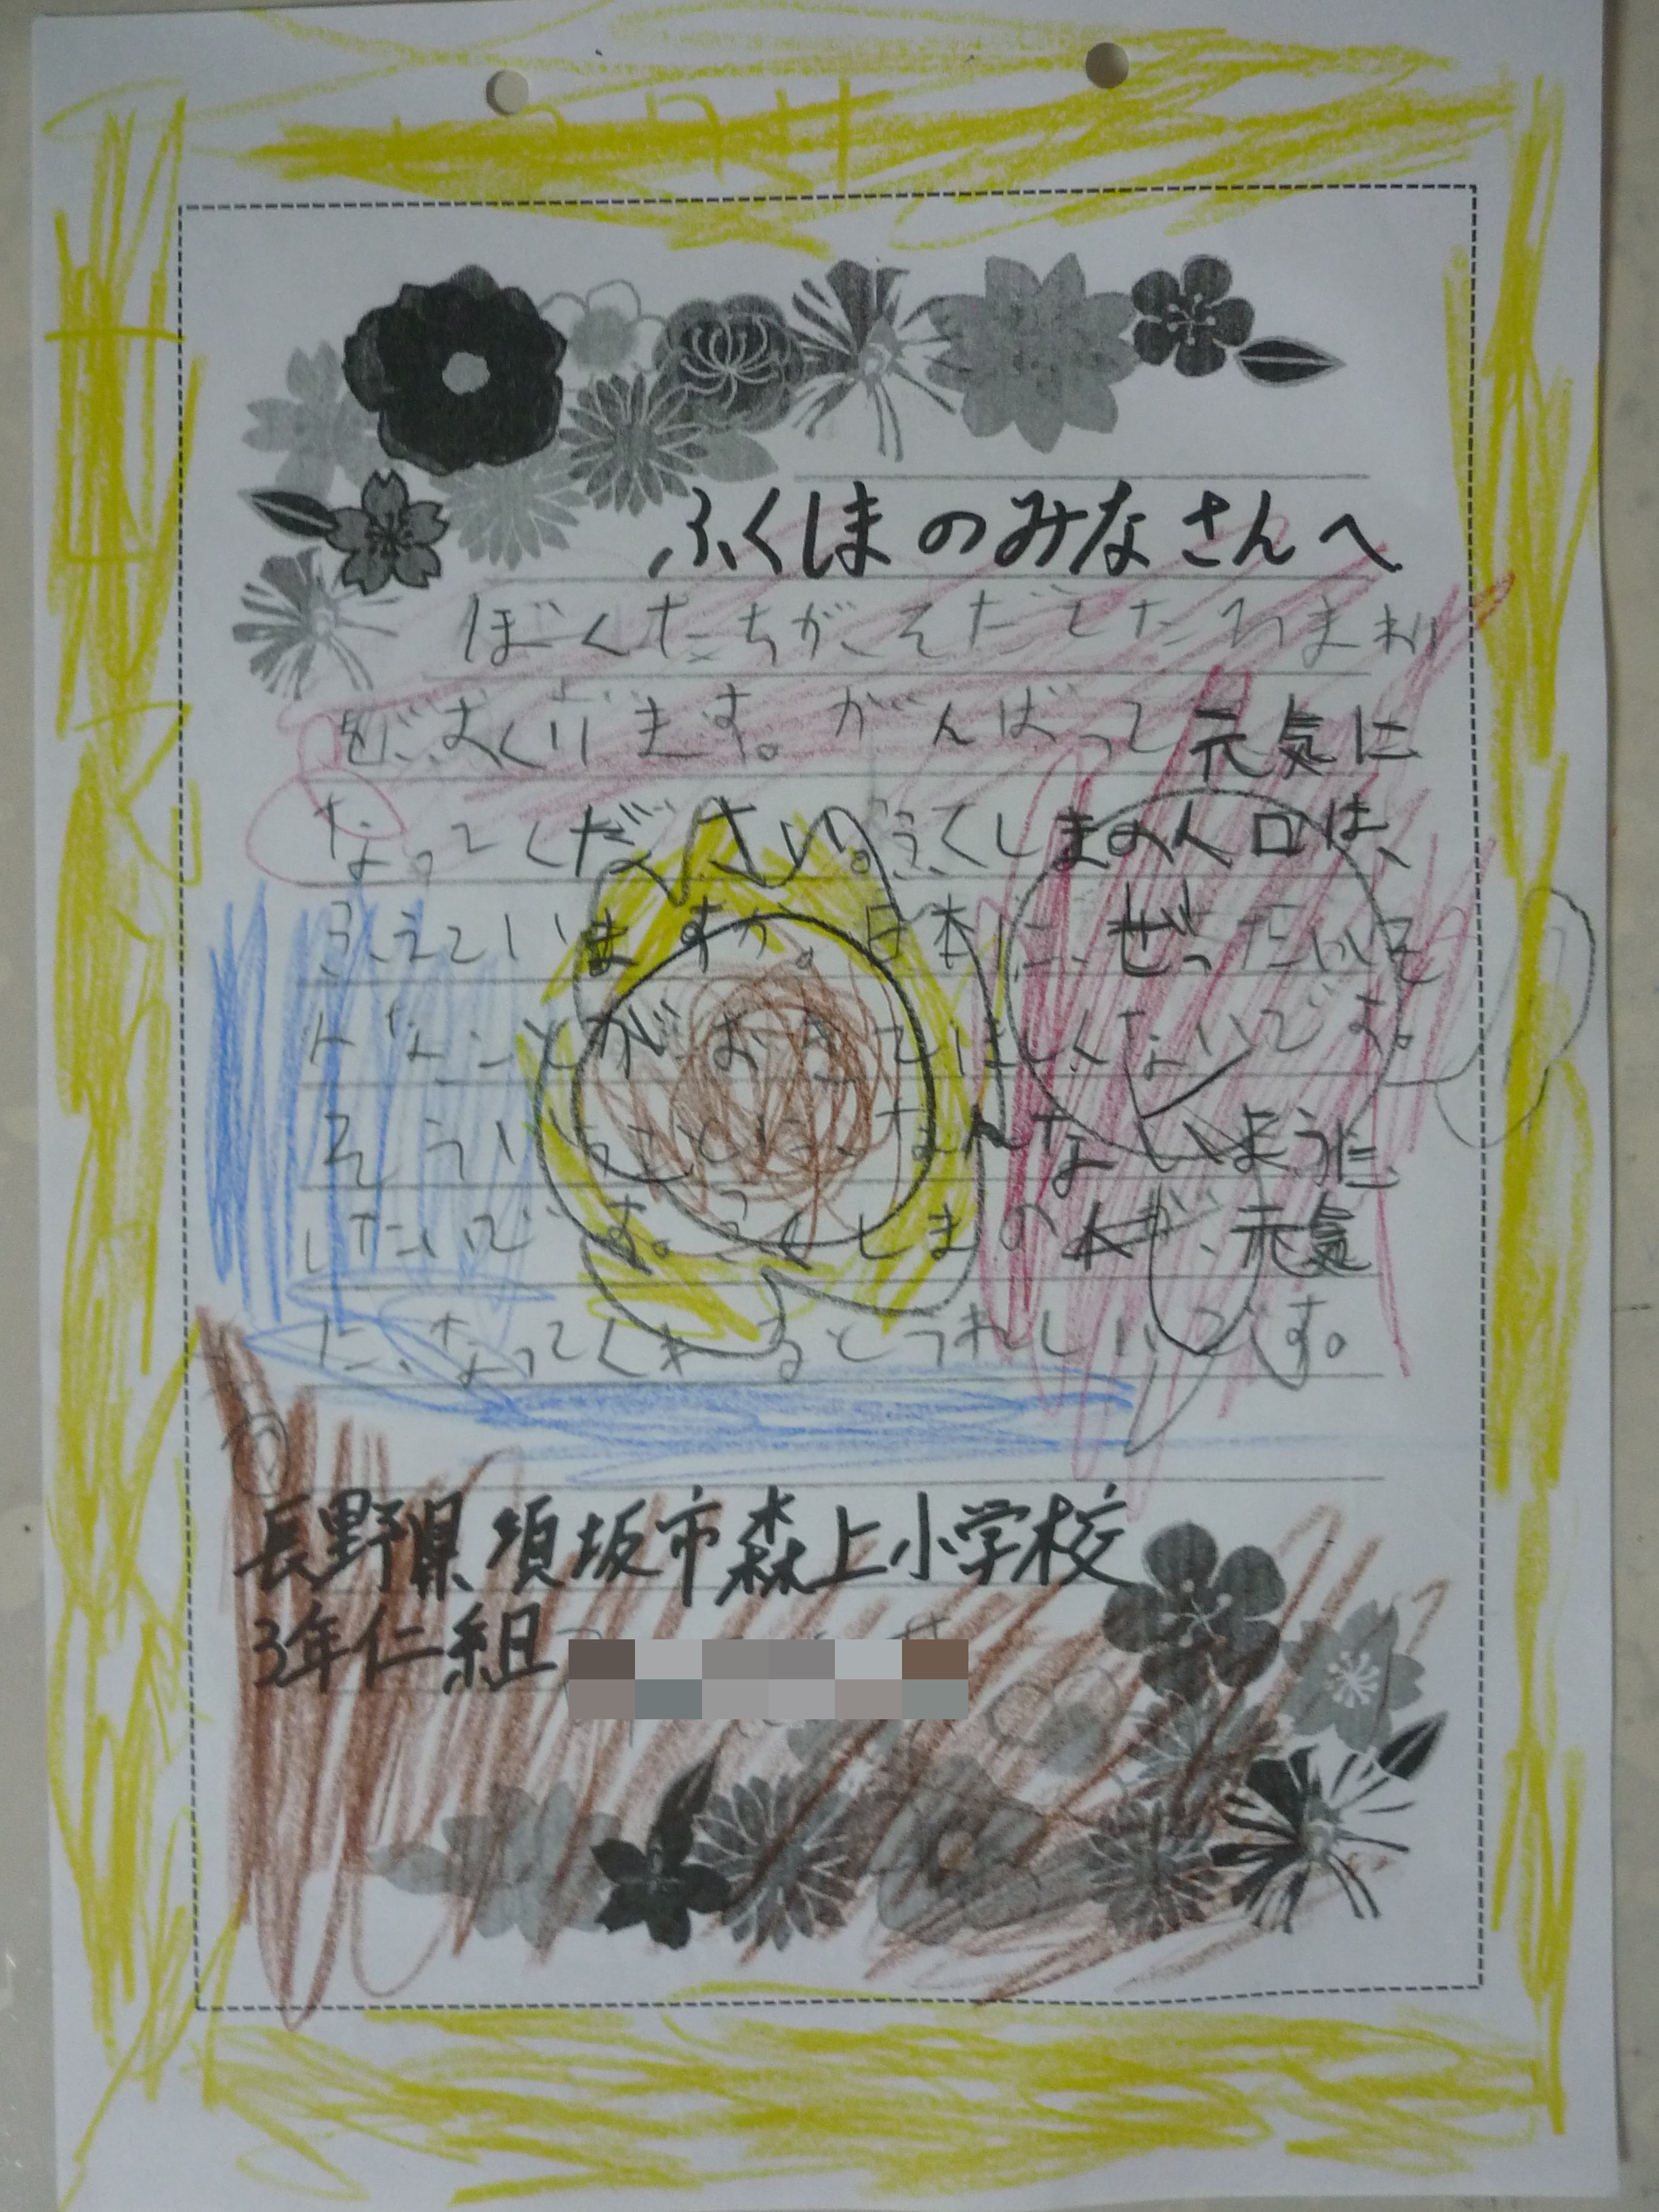 ふくしまのみなさんへ
ぼくたちが、そだてたひまわり
を、おくります。がんばって元気に
なってください。ふくしまの人口は、
ふえていますか。日本に、ぜったいそ
んなことが、おきてほしくないです。
そういうことに、なんないように、
したいです。ふくしまの人が、元気
に、なってくれるとうれしいです。
長野県須坂市森上小学校
3年仁組